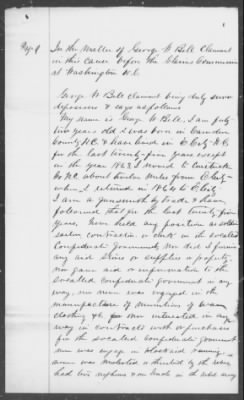 Page 1
In the Matter of George W Bell Claimant
in this cause before the Claims Commission
at Washington D.C.
George W Bell Claimant being duly sworn
deposes & says as follows
My name is George W. Bell. I am fifty
two years old I was born in Camden
County N.C. & have lived in E. City N.C.
for the last twenty-five years except
in the year 1863 I moved to Currituck
Co N.C. about twelve miles from E City
when I returned in 1864 to E City
I am a gunsmith by trade & have
followed that for the last twenty five
years, never held any position as
sailor contractor or clerk in the socalled
Confederate government, nor did I furnish
any aid stores or supplies or property
nor gave aid or information to the
socalled confederate government in any
way, nor never was engaged in the
manufacture of munitions of war
clothing &c nor interested in any
way in contracts with or purchases
for the socalled Confederate government
never was engaged in blockade running
never was molested or threatened by the rebels
had two nephews & one back in the rebel army